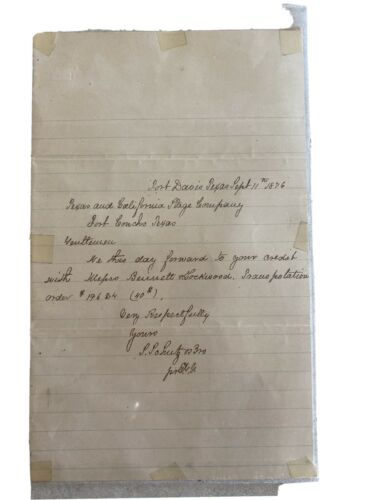 Fort Davis Texas Sept 11th 1876
Texas and California Stage Company
Fort Concho Texas
Gentlemen
We this day forward to your credit
with Messrs Bennett & Lockwood. Transpotation
order $196.84
Very Respectfully
Yours
S. Schutz & Bro